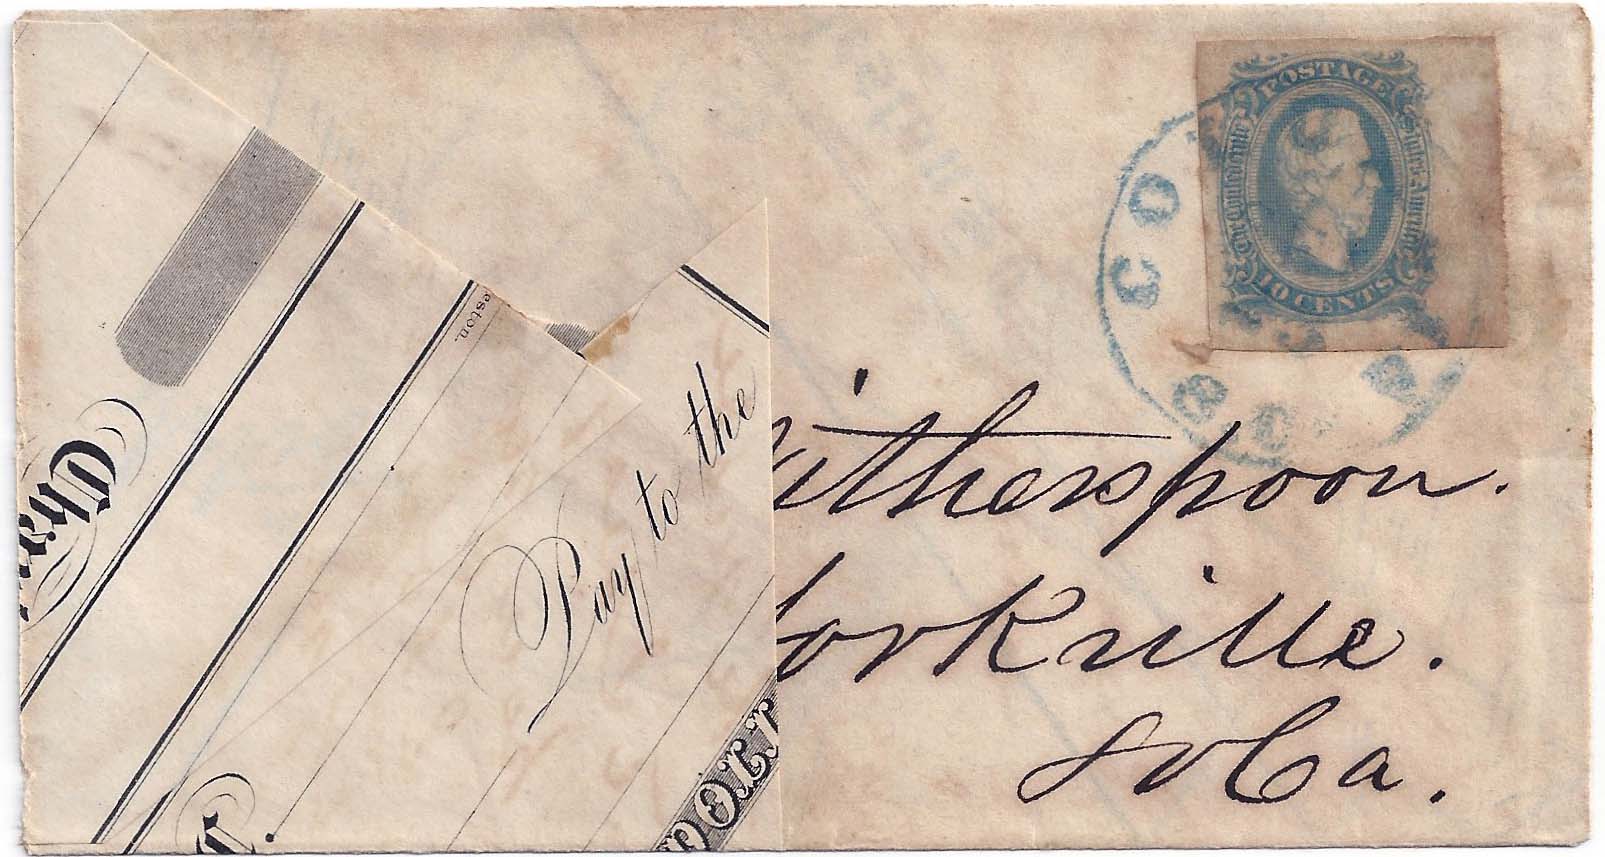 POSTAGE
The Confederate States of America
10 CENTS
CO
S.C.
eston.
Char
Pay to the
itherspoon.
orkville.
So Ca.